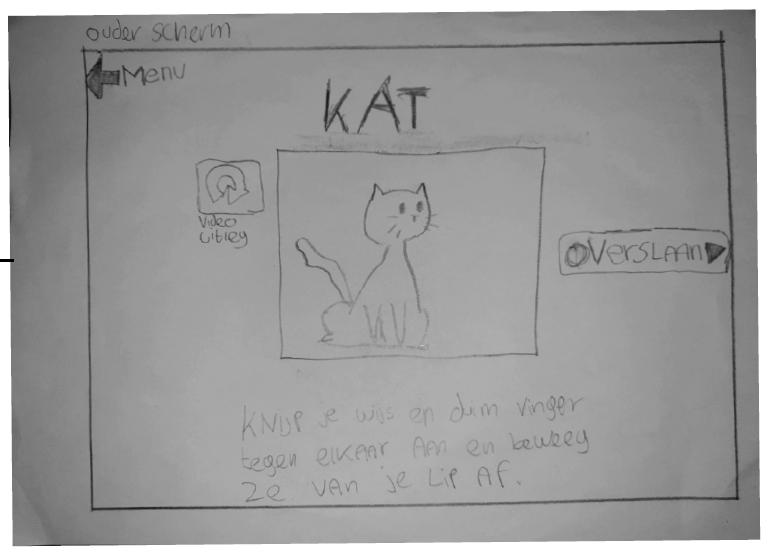 ouder scherm
Menu
KAT
Video
uitleg
OVerSLAAN
KNijP je wijs en duim vinger
tegen elkaar AAn en beweeg
ze VAN je Lip AF.